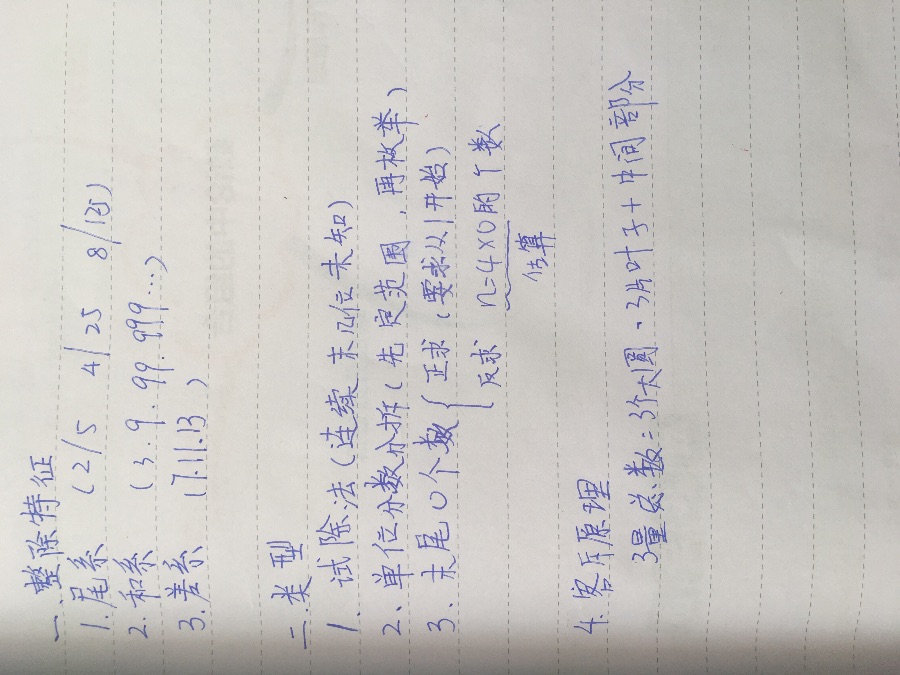 一.整除特征
1.尾系 (2/5 4/25 8/125)
2.和系 (3.9.99.999…)
3.差系 (7.11.13)
二.类型
1. 试除法(连续末几位未知)
2、单位分数分拆(先定范围,再枚举)
3.末尾0个数{正求(要求从1开始)
反求 n=4×0的个数
估算
4.容斥原理
3量总数=3个大圆-3片叶子+中间部分